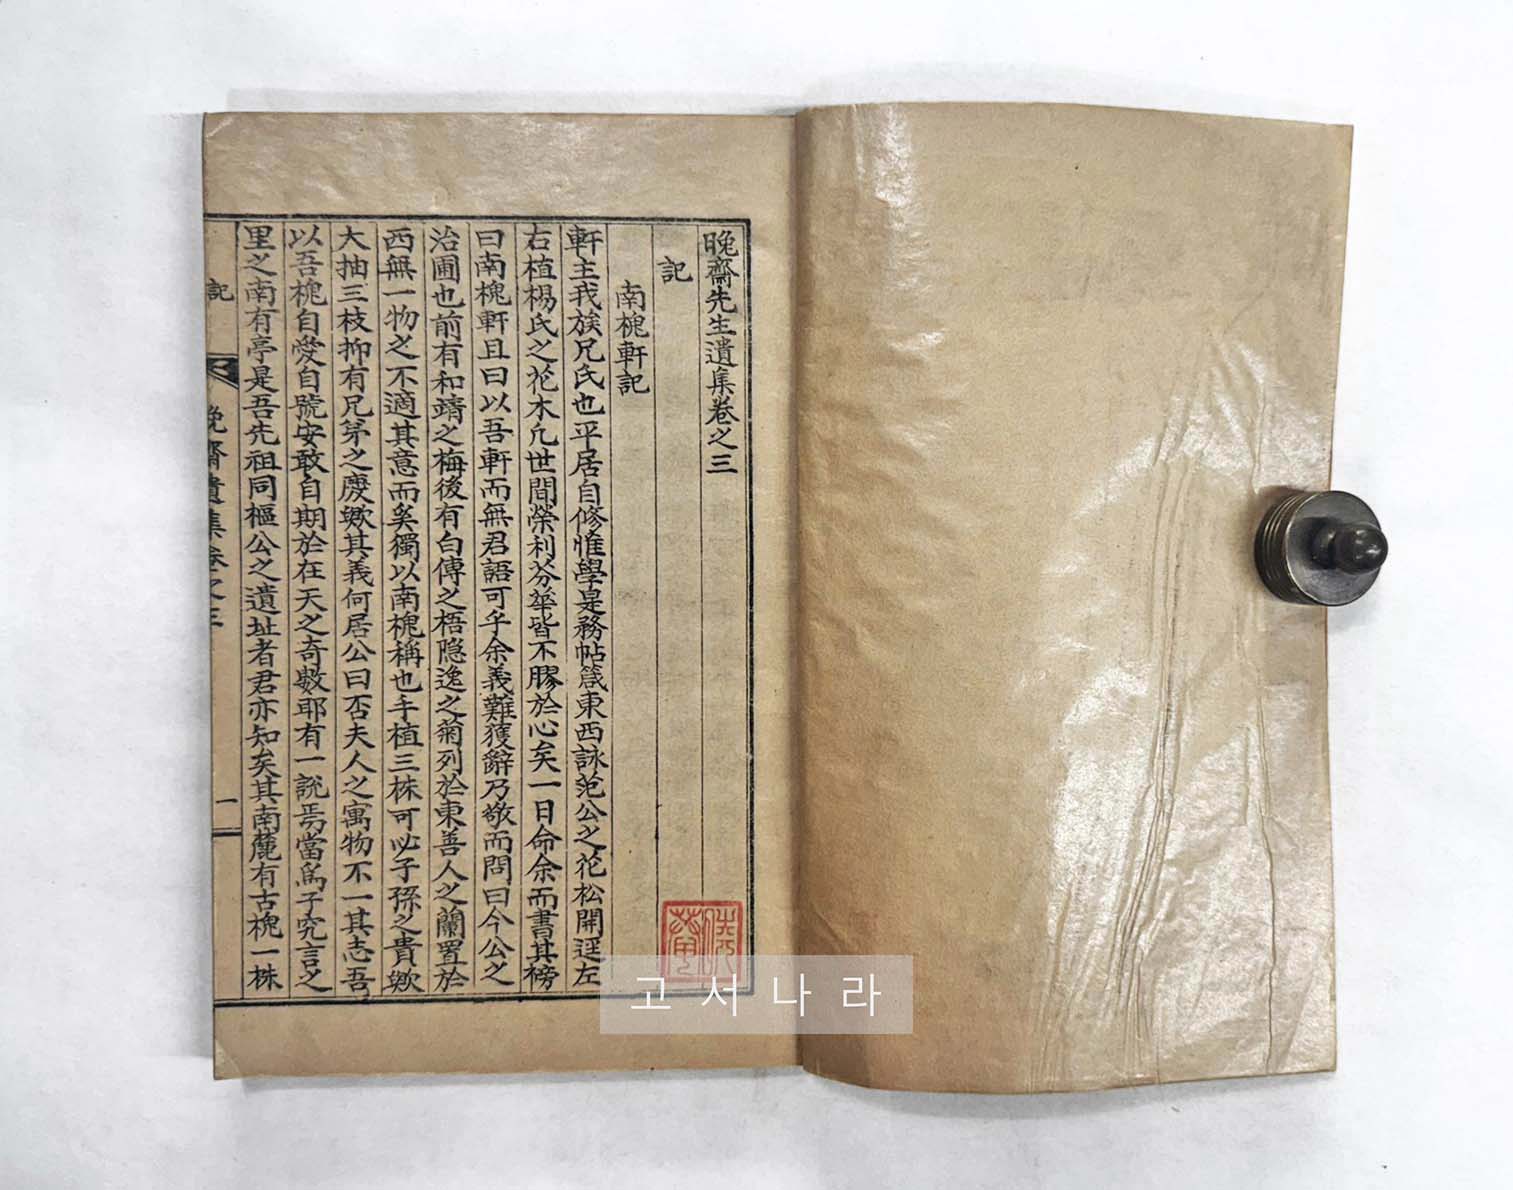 晩齋先生遺集卷之三
記
南槐軒記
軒主我族兄氏也平居自修惟學是務帖箴東西詠范公之花松開逕左
右植楊氏之花木凢世間榮利芬華皆不膠於心矣一日命余而書其榜
曰南槐軒且曰以吾軒而無君語可乎余義難獲辭乃敬而問曰今公之
治圃也前有和靖之梅後有白傅之梧隐逸之菊列於東善人之蘭置於
西無一物之不適其意而奚獨以南槐稱也手植三株可必子孫之貴歟
大抽三枝抑有兄弟之慶歟其義何居公曰否夫人之寓物不一其志吾
以吾槐自愛自號安敢自期於在天之奇數耶有一說焉當爲子究言之
里之南有亭是吾先祖同樞公之遺址者君亦知矣其南麓有古槐一株
記
晩齋遺集卷之三
一
고서나라